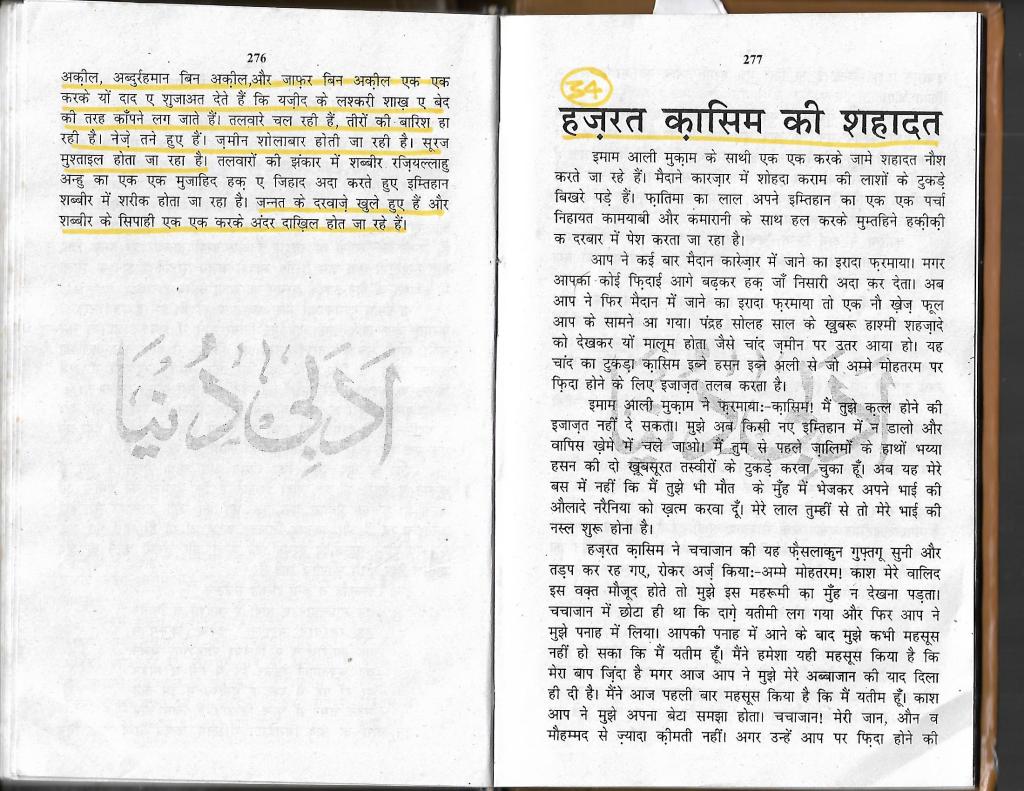 276
अक़ील, अब्दुर्रहमान बिन अक़ील,और जाफ़र बिन अक़ील एक एक
करके यों दाद ए शुजाअत देते हैं कि यज़ीद के लश्करी शाख़ ए बेद
की तरह काँपने लग जाते हैं। तलवारे चल रही हैं, तीरों की बारिश हा
रही है। नेज़े तने हुए हैं। ज़मीन शोलाबार होती जा रही है। सूरज
मुश्ताइल होता जा रहा है। तलवारों की झंकार में शब्बीर रज़ियल्लाहु
अन्हु का एक एक मुजाहिद हक़ ए जिहाद अदा करते हुए इम्तिहान
शब्बीर में शरीक होता जा रहा है। जन्नत के दरवाज़े खुले हुए हैं और
शब्बीर के सिपाही एक एक करके अंदर दाख़िल होत जा रहे हैं।
ادبی دُنیا
277
34
हज़रत क़ासिम की शहादत
इमाम आली मुक़ाम के साथी एक एक करके जामे शहादत नौश
करते जा रहे हैं। मैदाने कारज़ार में शोहदा कराम की लाशों के टुकड़े
बिखरे पड़े हैं। फ़ातिमा का लाल अपने इम्तिहान का एक एक पर्चा
निहायत कामयाबी और कंमारानी के साथ हल करके मुम्तहिने हक़ीक़ी
क दरबार में पेश करता जा रहा है।
आप ने कई बार मैदान कारेज़ार में जाने का इरादा फ़रमाया। मगर
आपका कोई फ़िदाई आगे बढ़कर हक़ जाँ निसारी अदा कर देता। अब
आप ने फिर मैदान में जाने का इरादा फ़रमाया तो एक नौ ख़ेज़ फूल
आप के सामने आ गया। पंद्रह सोलह साल के ख़ुबरू हाश्मी शहज़ादे
को देखकर यों मालूम होता जैसे चांद ज़मीन पर उतर आया हो। यह
चांद का टुकड़ा क़ासिम इब्ने हसन इब्ने अली से जो अम्मे मोहतरम पर
फ़िदा होने के लिए इजाज़त तलब करता है।
इमाम आली मुक़ाम ने फ़रमाया:-क़ासिम! मैं तुझे क़त्ल होने की
इजाज़त नहीं दे सकता। मुझे अब किसी नए इम्तिहान में न डालो और
वापिस ख़ेमे में चले जाओ। मैं तुम से पहले ज़ालिमों के हाथों भय्या
हसन की दो ख़ूबसूरत तस्वीरों के टुकड़े करवा चुका हूँ। अब यह मेरे
बस में नहीं कि मैं तुझे भी मौत के मुँह में भेजकर अपने भाई की
औलादे नरैनिया को ख़त्म करवा दूँ। मेरे लाल तुम्हीं से तो मेरे भाई की
नस्ल शुरू होना है।
हज़रत क़ासिम ने चचाजान की यह फ़ैसलाकुन गुफ़्तगू सुनी और
तड़प कर रह गए, रोकर अर्ज़ किया:-अम्मे मोहतरम! काश मेरे वालिद
इस वक़्त मौजूद होते तो मुझे इस महरूमी का मुँह न देखना पड़ता।
चचाजान में छोटा ही था कि दाग़े यतीमी लग गया और फिर आप ने
मुझे पनाह में लिया। आपकी पनाह में आने के बाद मुझे कभी महसूस
नहीं हो सका कि मैं यतीम हूँ। मैंने हमेशा यही महसूस किया है कि
मेरा बाप ज़िंदा है मगर आज आप ने मुझे मेरे अब्बाजान की याद दिला
ही दी है। मैंने आज पहली बार महसूस किया है कि मैं यतीम हूँ। काश
आप ने मुझे अपना बेटा समझा होता। चचाजान! मेरी जान, औन व
मौहम्मद से ज़्यादा क़ीमती नहीं। अगर उन्हें आप पर फ़िदा होने की
ادبی دُنیا